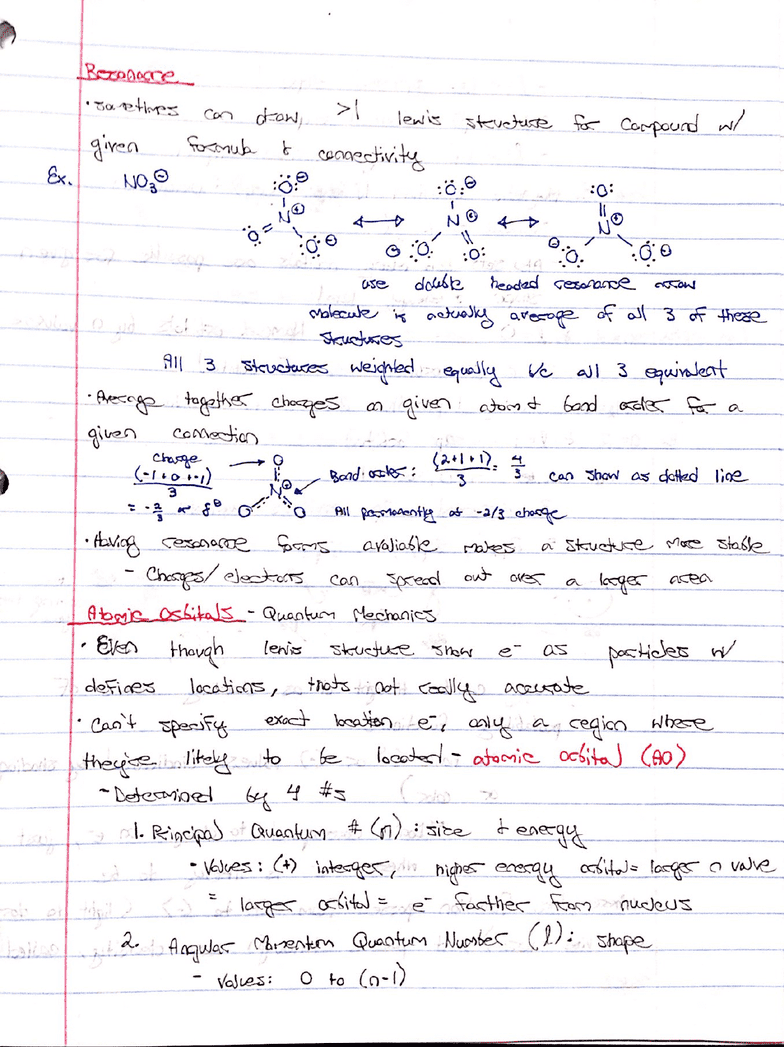 Resonance
• sometimes can draw, >1 lewis structure for compound w/
given formula & connectivity
Ex. NO3⊖
:Ö:⊖ :Ö:⊖ :O:
N⊕ ↔ N⊕ ↔ N⊕
Ö= :Ö:⊖ ⊖:Ö: :O: ⊖:Ö: :Ö:⊖
use double headed resonance arrow
molecule is actually average of all 3 of these
structures
All 3 structures weighted equally b/c all 3 equivalent
• Average together charges on given atom & bond order for a
given connection
charge → O
(-1+0+-1)/3 N⊕ Bond order: (2+1+1)/3 = 4/3 can show as dotted line
= -2/3 or δ⊖ O O All permanently at -2/3 charge
• Having resonance forms avaliable makes a structure more stable
- Charges/electrons can spread out over a larger area
Atomic Orbitals - Quantum Mechanics
• Even though lewis structure show e⁻ as particles w/
defines locations, thats not really accurate
• can't specify exact location e⁻, only a region where
they're likely to be located - atomic orbital (AO)
- Determined by 4 #s
1. Principal Quantum # (n): size & energy
- Values: (+) interger, higher energy orbital = larger n value
= larger orbital = e⁻ farther from nucleus
2. Angular Momentum Quantum Number (l): shape
- Values: 0 to (n-1)